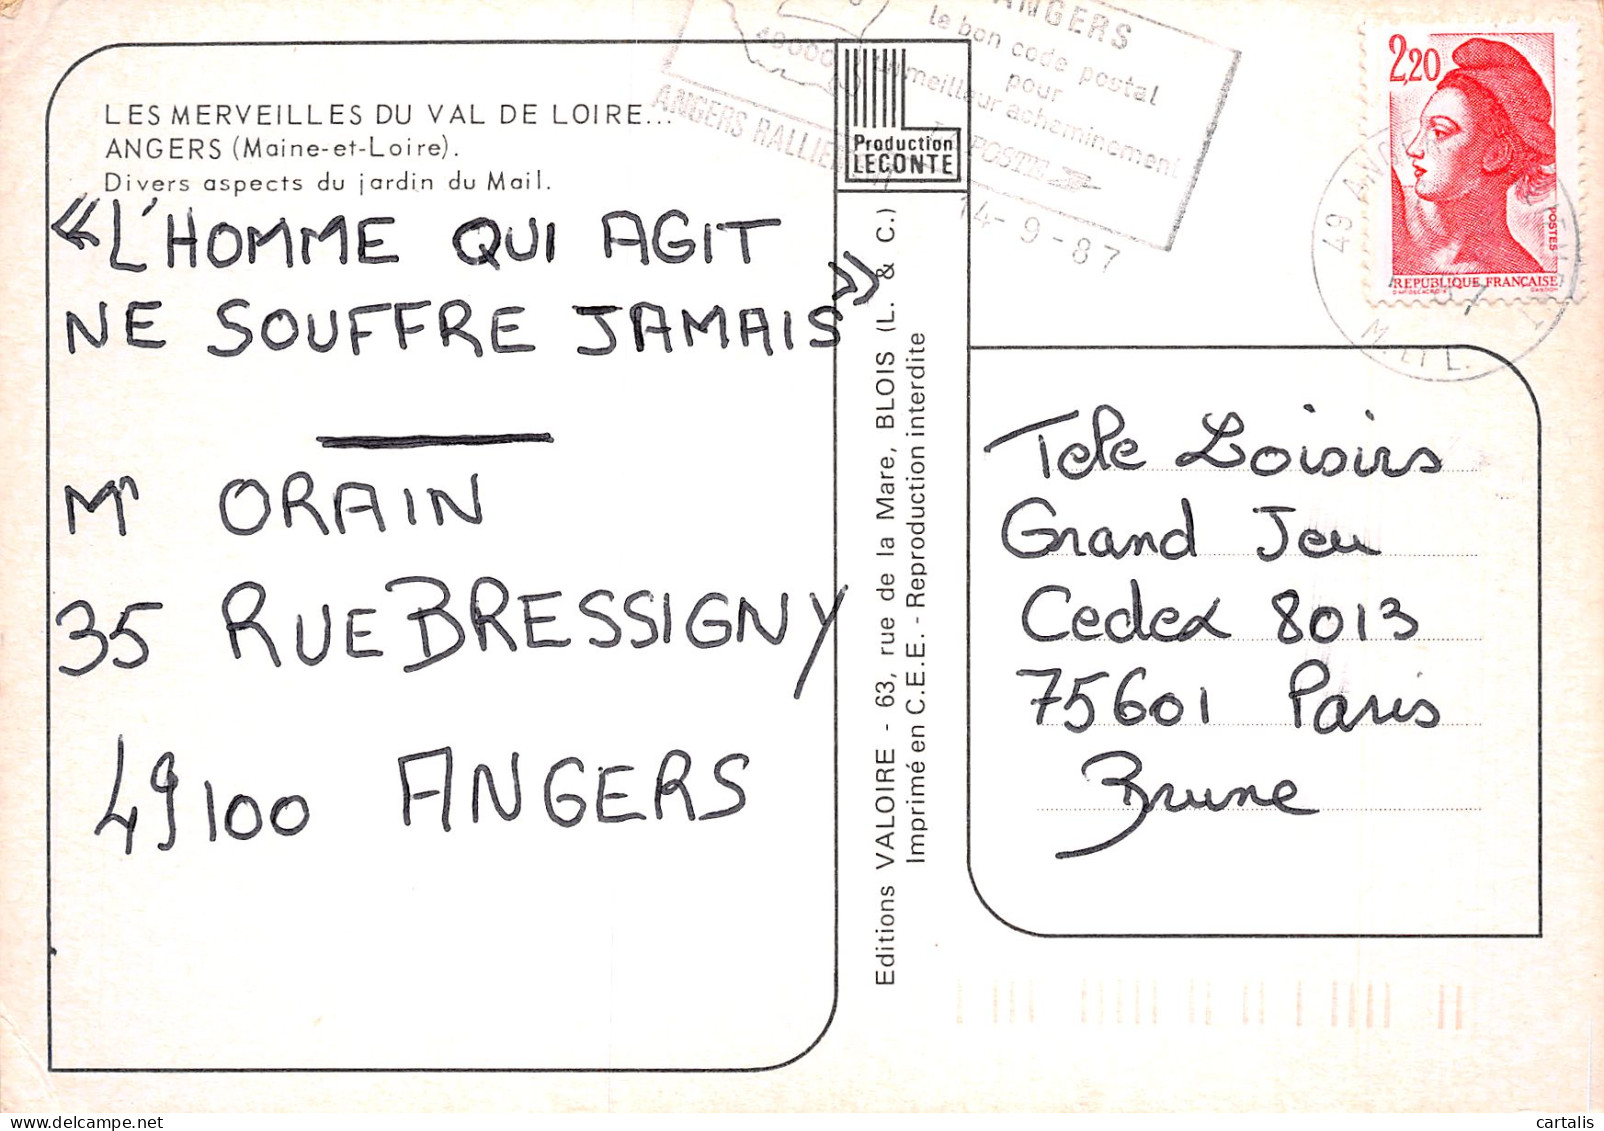 LES MERVEILLES DU VAL DE LOIRE...
ANGERS (Maine-et-Loire).
Divers aspects du jardin du Mail.
« L'HOMME QUI AGIT
NE SOUFFRE JAMAIS »
Mr ORAIN
35 RUE BRESSIGNY
49100 ANGERS
Production
LECONTE
Editions VALOIRE - 63, rue de la Mare, BLOIS (L. & C.)
Imprimé en C.E.E. - Reproduction interdite
49000
ANGERS
le bon code postal
pour
meilleur acheminement
LA POSTE
14-9-87
2,20
POSTES
REPUBLIQUE FRANÇAISE
49 ANGERS
M. ET L.
Tele Loisirs
Grand Jeu
Cedex 8013
75601 Paris
Brune
cartalis
www.delcampe.net